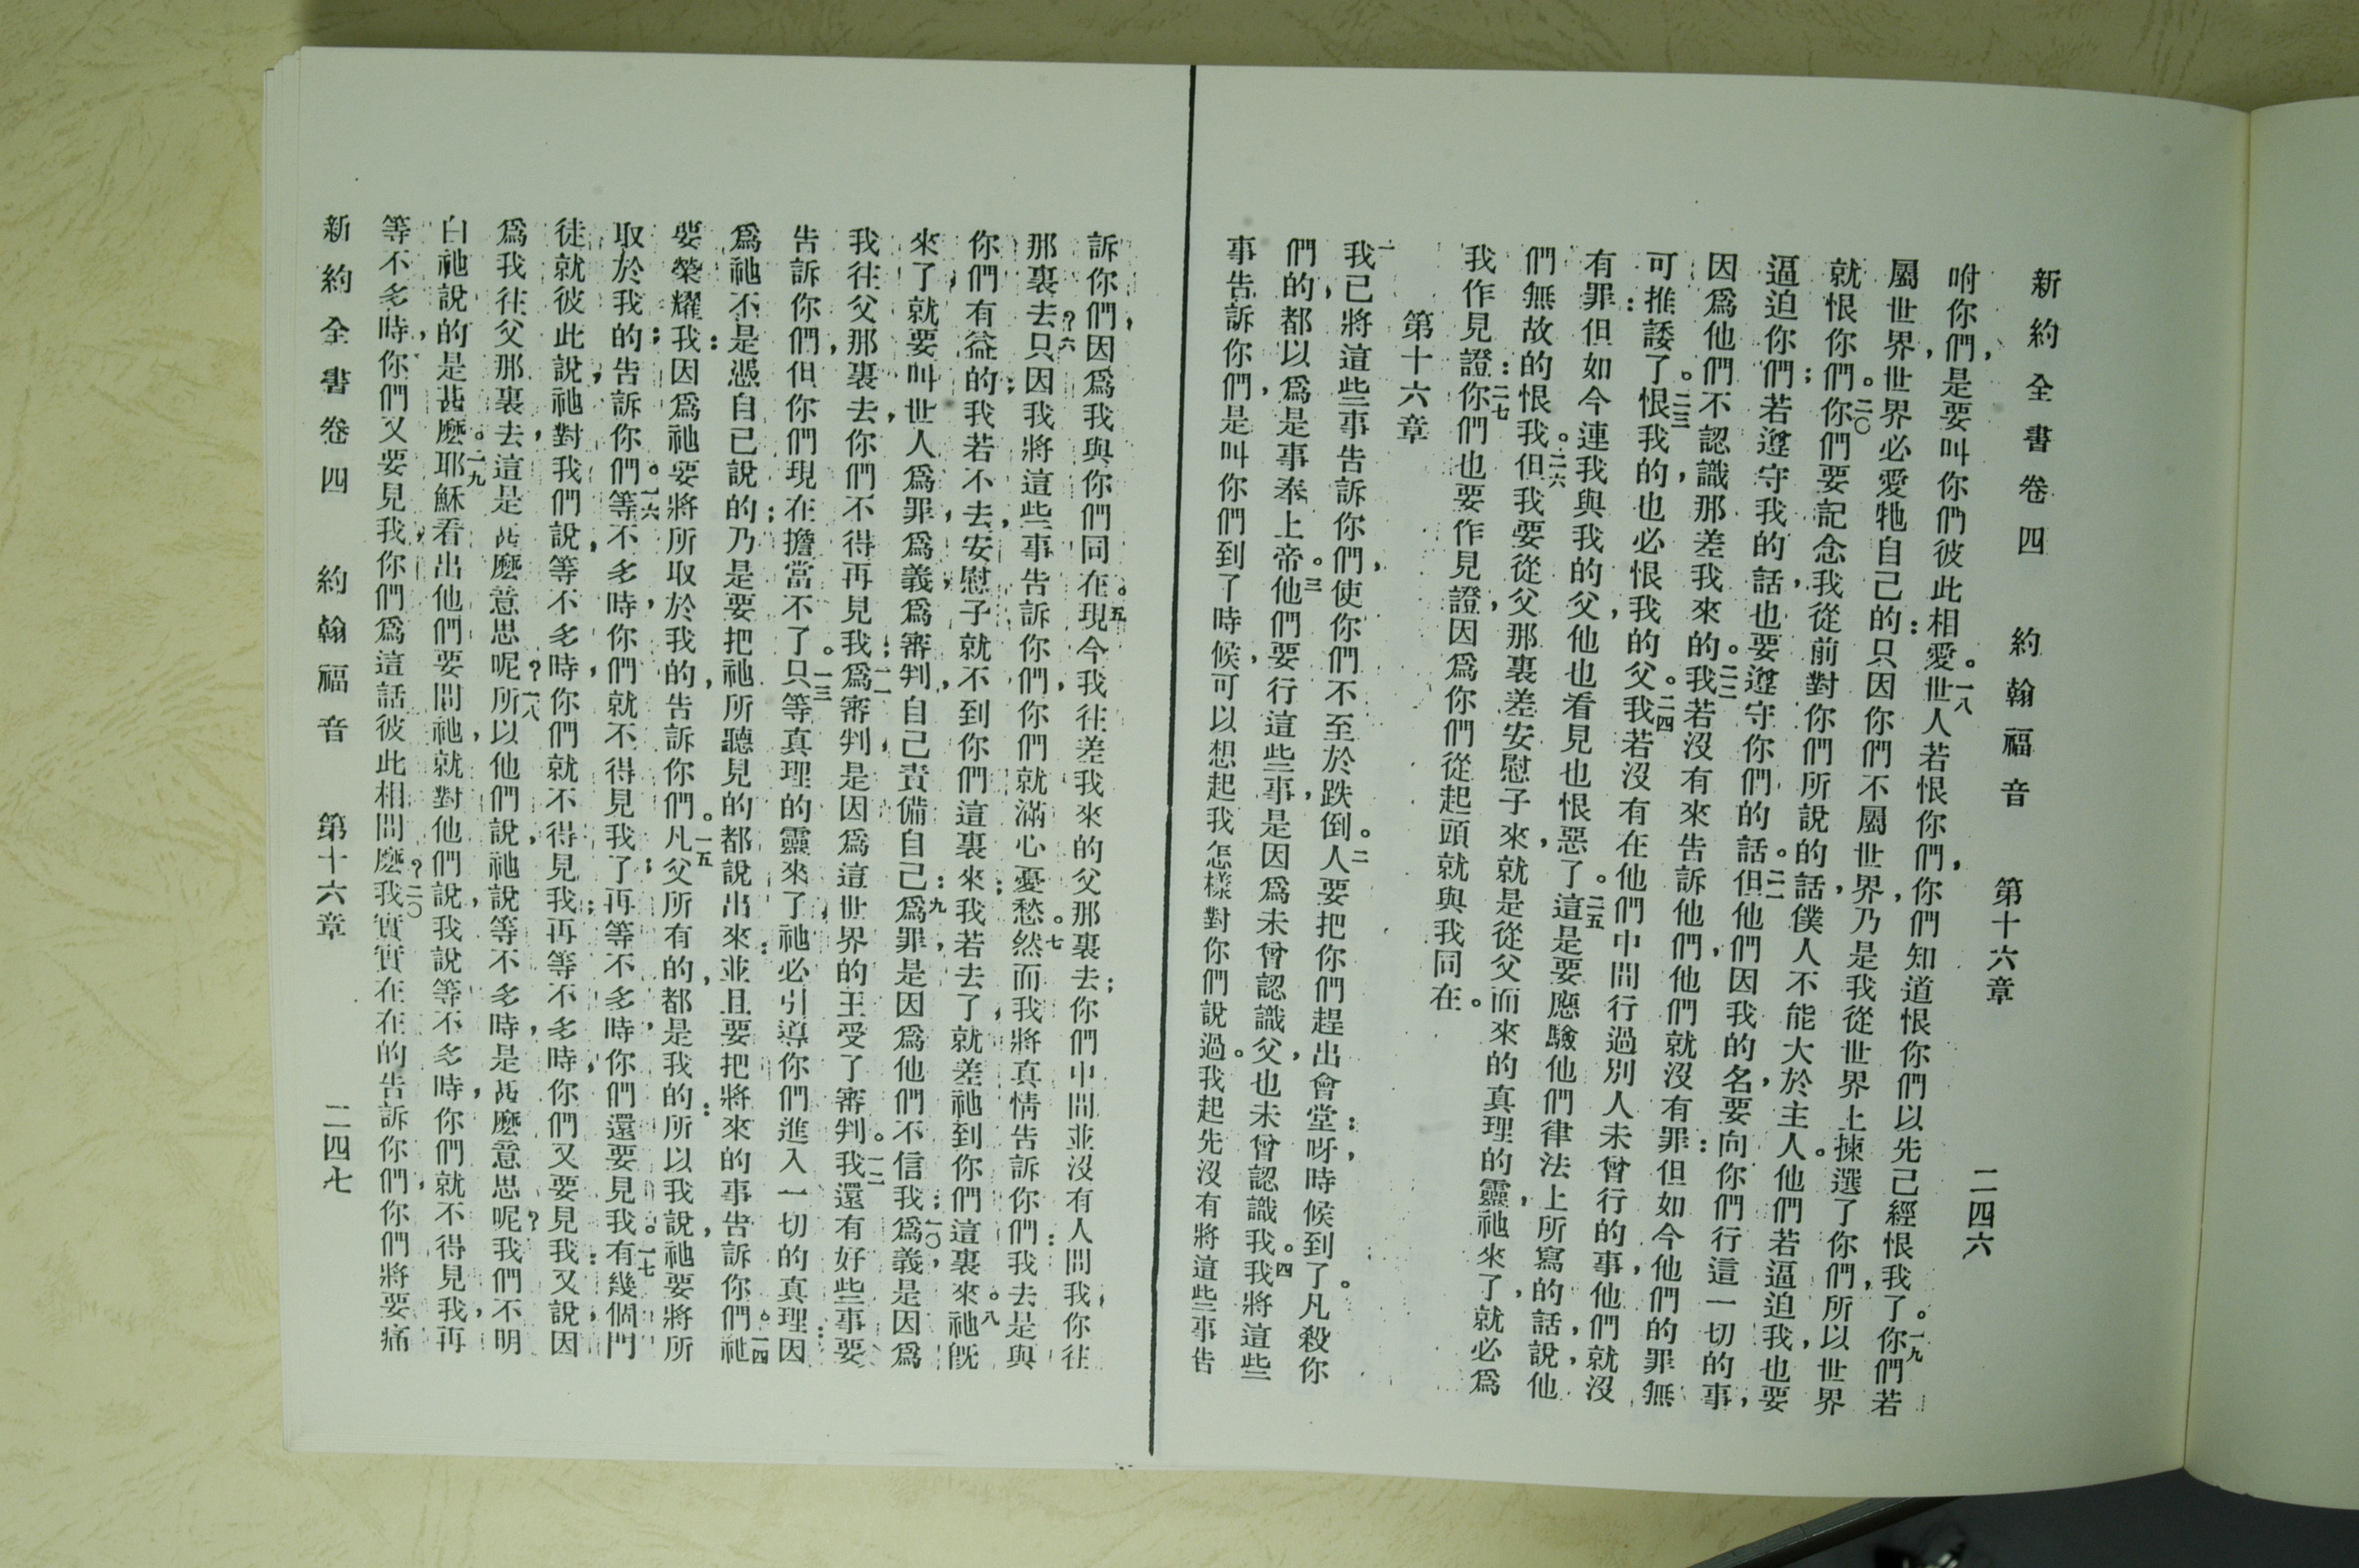 新約全書卷四　約翰福音　第十六章　二四六
咐你們，是要叫你們彼此相愛。一八世人若恨你們，你們知道恨你們以先己經恨我了。一九你們若
屬世界，世界必愛牠自己的：只因你們不屬世界，乃是我從世界上揀選了你們，所以世界
就恨你們。二〇你們要記念我從前對你們所說的話，僕人不能大於主人。他們若逼迫我，也要
逼迫你們；若遵守我的話，也要遵守你們的話。二一但他們因我的名，要向你們行這一切的事，
因爲他們不認識那差我來的。二二我若沒有來告訴他們，他們就沒有罪：但如今他們的罪無
可推諉了。二三恨我的，也必恨我的父。二四我若沒有在他們中間行過別人未曾行的事，他們就沒
有罪：但如今連我與我的父，他也看見也恨惡了。二五這是要應驗他們律法上所寫的話，說，他
們無故的恨我。二六但我要從父那裏差安慰子來，就是從父而來的真理的靈，祂來了，就必爲
我作見證：二七你們也要作見證，因爲你們從起頭就與我同在。
第十六章
一我已將這些事告訴你們，使你們不至於跌倒。二人要把你們趕出會堂：呀，時候到了。凡殺你
們的，都以爲是事奉上帝。三他們要行這些事，是因爲未曾認識父，也未曾認識我。四我將這些
事告訴你們，是叫你們到了時候，可以想起我怎樣對你們說過。我起先沒有將這些事告
訴你們，因爲我與你們同在。五現今我往差我來的父那裏去；你們中間並沒有人問我，你往
那裏去？六只因我將這些事告訴你們，你們就滿心憂愁。七然而我將真情告訴你們：我去是與
你們有益的；我若不去，安慰子就不到你們這裏來；我若去了，就差祂到你們這裏來。八祂既
來了，就要叫世人爲罪，爲義，爲審判，自己責備自己：九爲罪，是因爲他們不信我；一〇爲義，是因爲
我往父那裏去，你們不得再見我；一一爲審判，是因爲這世界的王受了審判。一二我還有好些事要
告訴你們，但你們現在擔當不了。一三只等真理的靈來了，祂必引導你們進入一切的真理：因
爲祂不是憑自己說的；乃是要把祂所聽見的都說出來：並且要把將來的事告訴你們。一四祂
要榮耀我：因爲祂要將所取於我的，告訴你們。一五凡父所有的，都是我的：所以我說，祂要將所
取於我的；告訴你們。一六等不多時，你們就不得見我了；再等不多時，你們還要見我。一七有幾個門
徒就彼此說，祂對我們說，等不多時，你們就不得見我；再等不多時，你們又要見我：又說，因
爲我往父那裏去，這是甚麼意思呢？一八所以他們說，祂說，等不多時，是甚麼意思呢？我們不明
白祂說的是甚麼。一九耶穌看出他們要問祂，就對他們說，我說等不多時，你們就不得見我，再
等不多時，你們又要見我，你們爲這話彼此相問麼？二〇我實實在在的告訴你們，你們將要痛
新約全書卷四　約翰福音　第十六章　二四七